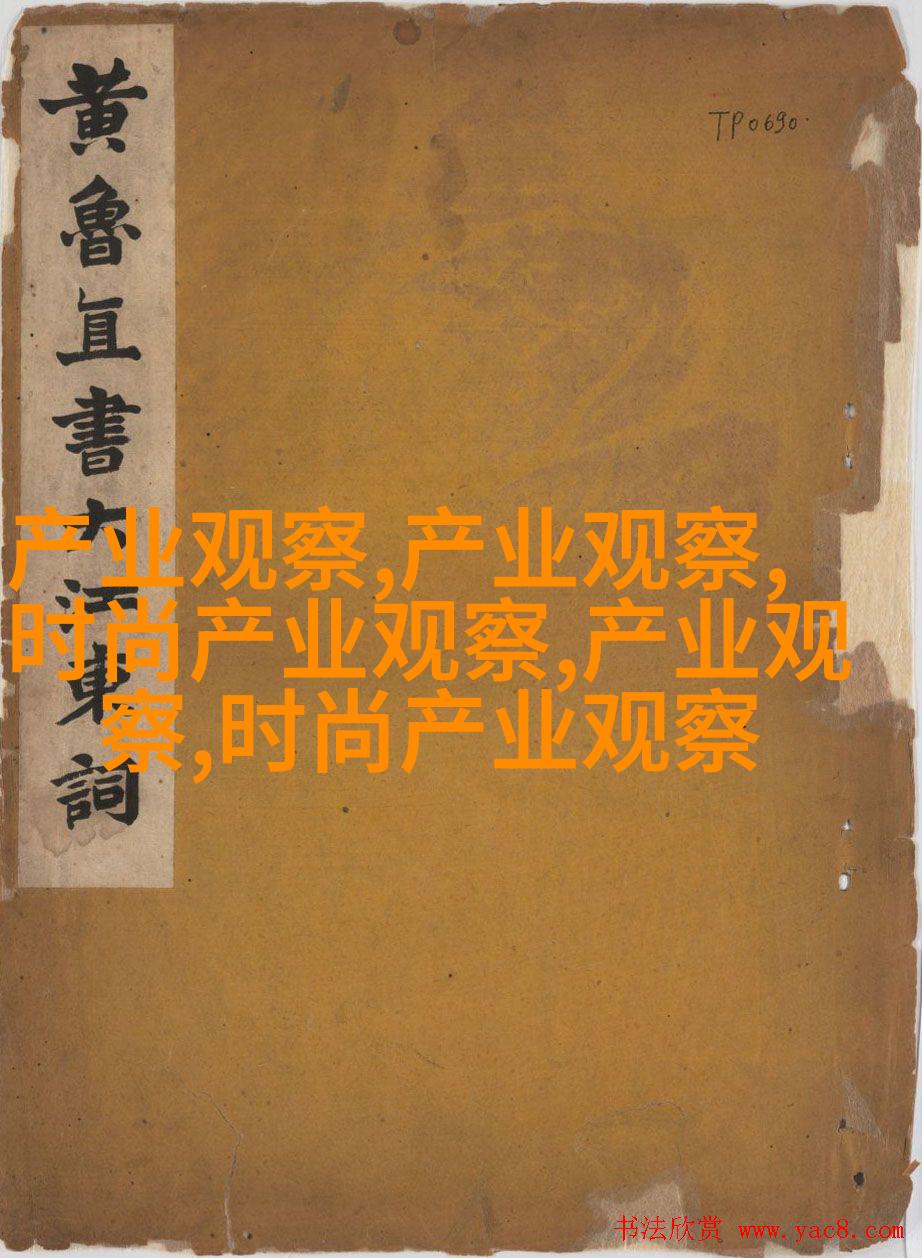 黄魯直書大江東詞
TP0690.
产业观察,产业观察,
时尚产业观察,产业观
察,时尚产业观察
书法欣赏 www.yac8.com